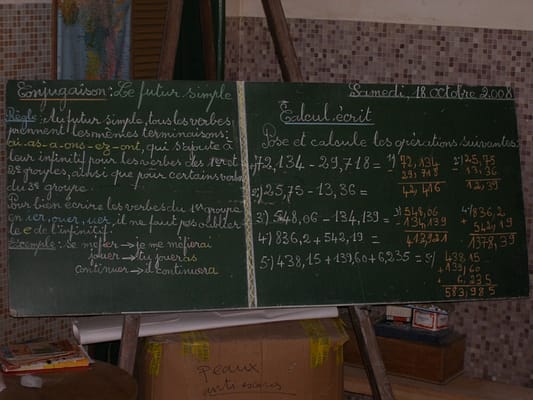 Conjugaison: Le futur simple
Règle: Au futur simple, tous les verbes
prennent les mêmes terminaisons:
ai-as-a-ons-ez-ont, qui s'ajoute à
leur infinitif pour les verbes des 1er et
2e groupes, ainsi que pour certains verbes
du 3e groupe.
Pour bien écrire les verbes du 1er groupe
en ier, ouer, uer, il ne faut pas oublier
le e de l'infinitif.
Exemple: se méfier → je me méfierai
jouer → tu joueras
continuer → il continuera
Samedi, 18 octobre 2008
Calcul écrit
Pose et calcule les opérations suivantes:
1) 72,134 - 29,718 =
2) 25,75 - 13,36 =
3) 548,06 - 134,139 =
4) 836,2 + 542,19 =
5) 438,15 + 139,60 + 6,235 =
1) 72,134
- 29,718
42,416
2) 25,75
- 13,36
12,39
3) 548,06
- 134,139
413,921
4) 836,2
+ 542,19
1378,39
5) 438,15
+ 139,60
+ 6,235
583,985
peaux